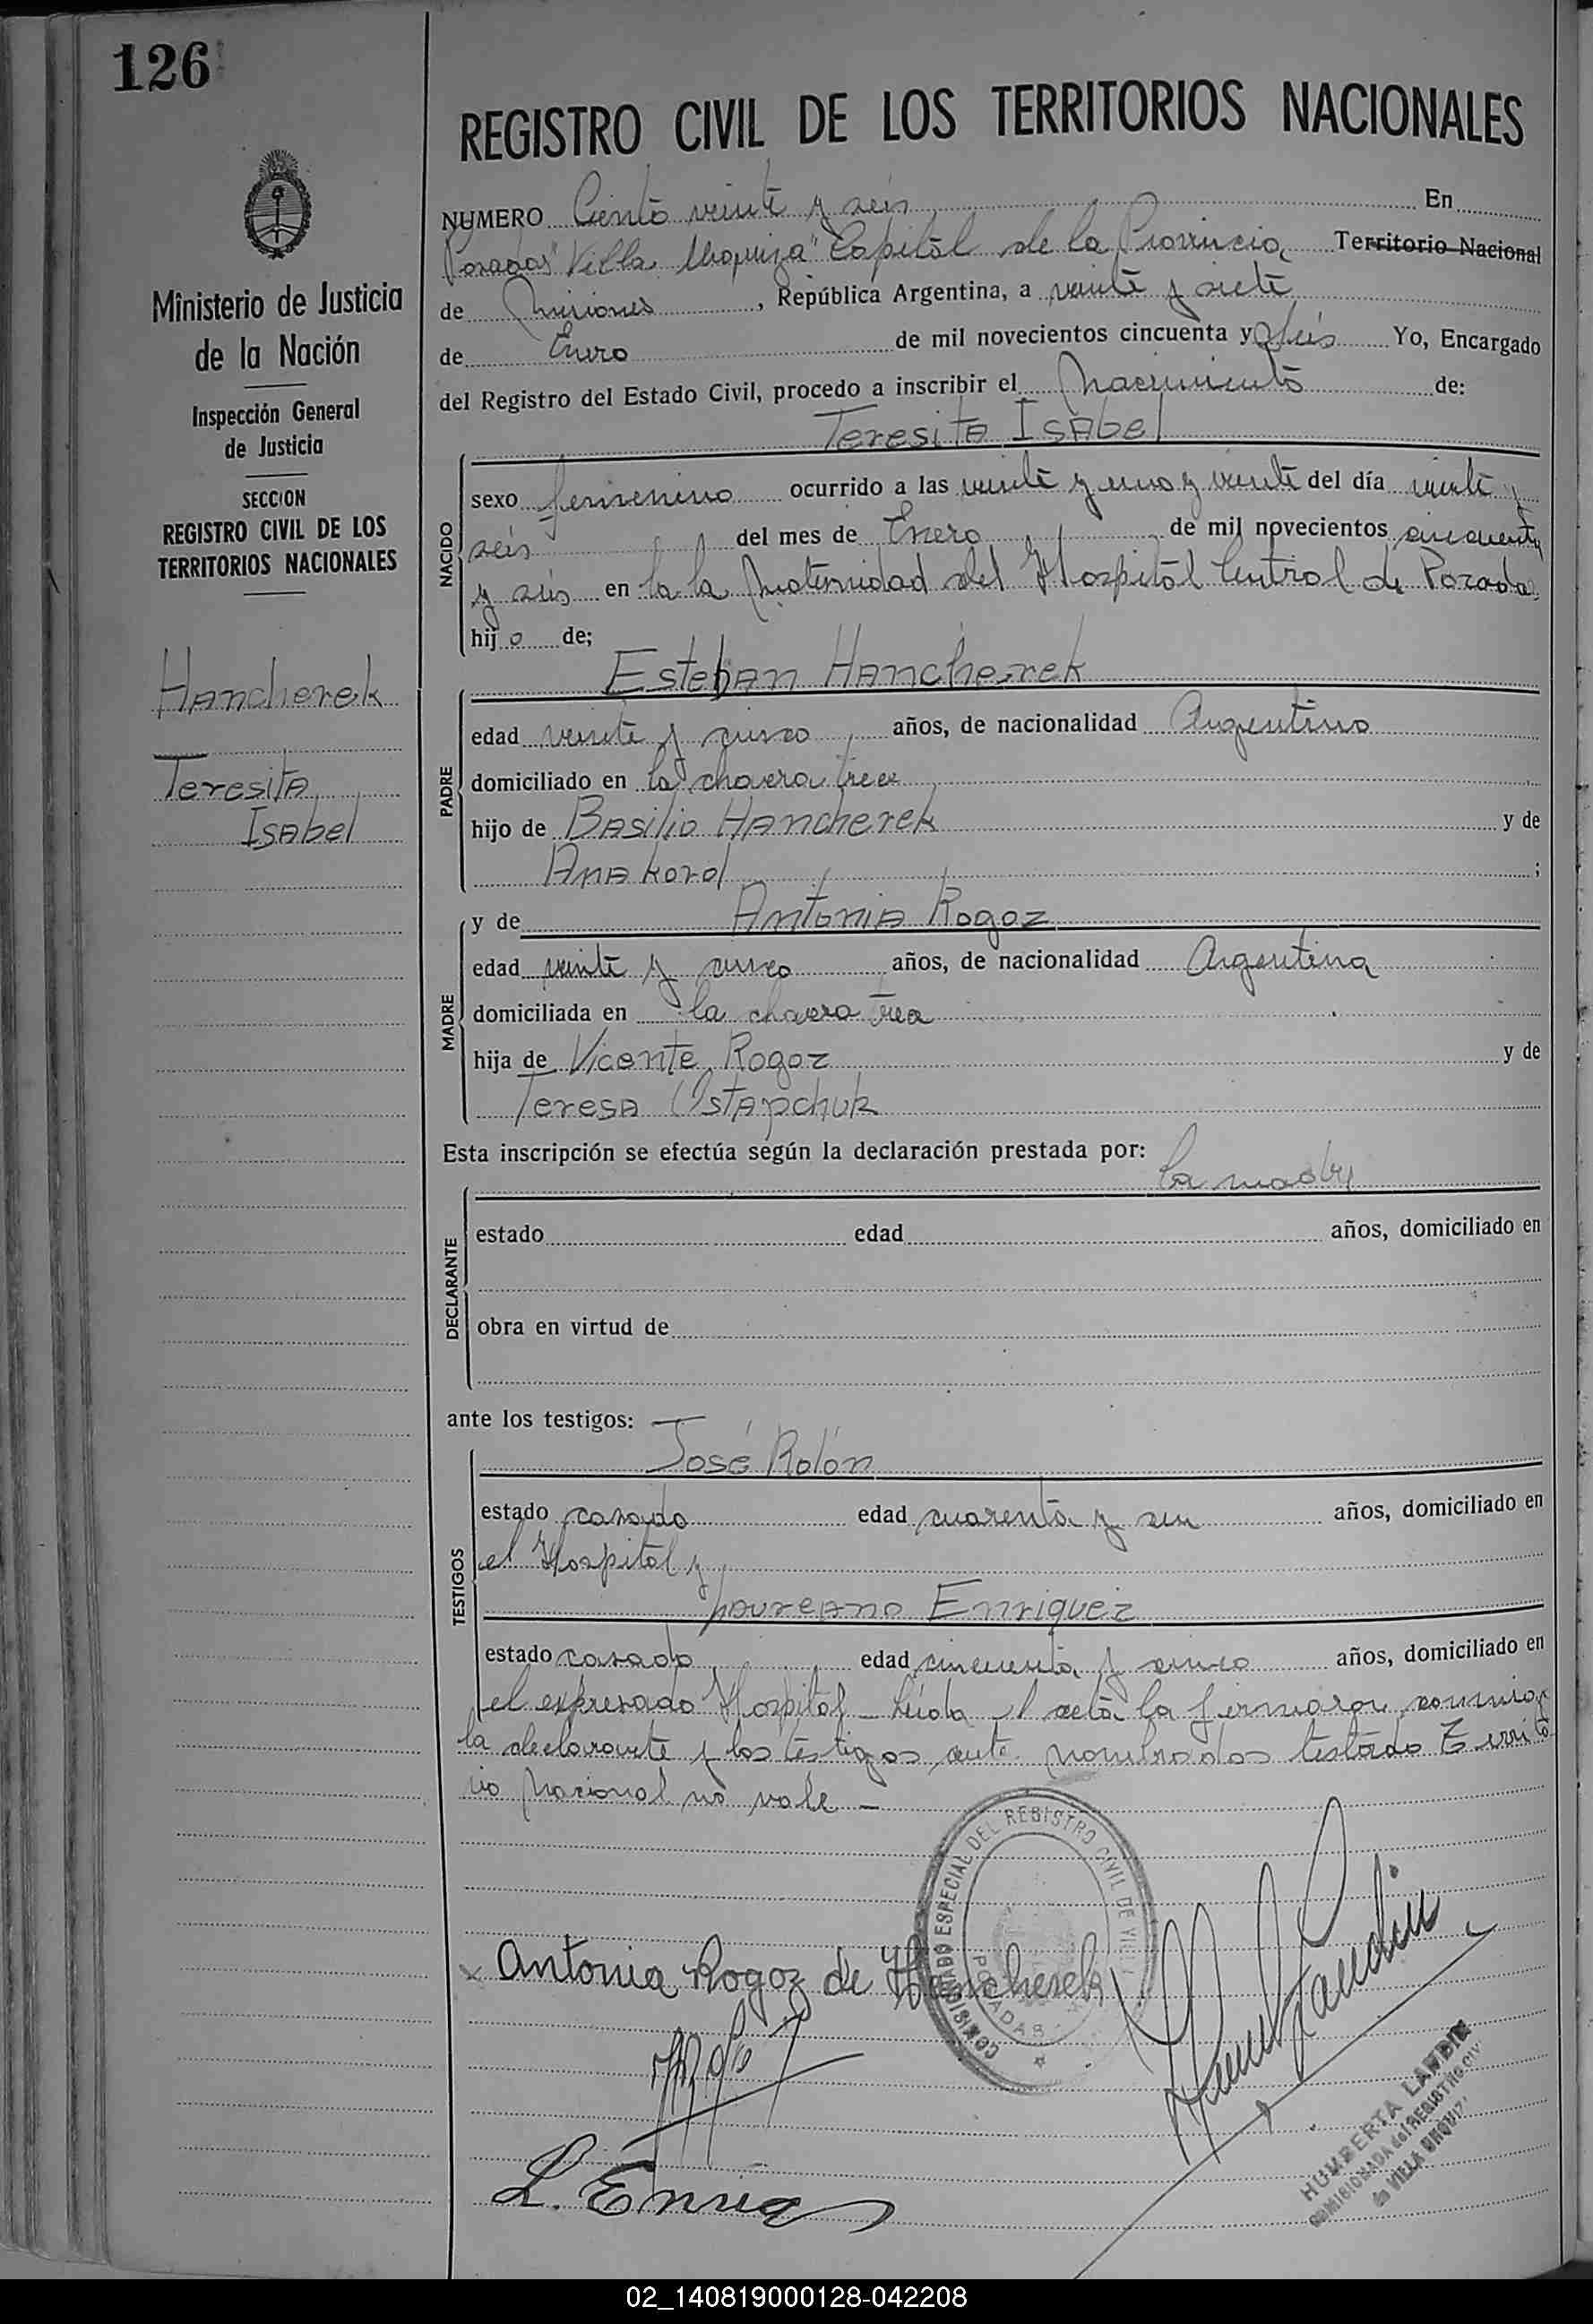 126
REGISTRO CIVIL DE LOS TERRITORIOS NACIONALES
Ministerio de Justicia
de la Nación
Inspección General
de Justicia
SECCION
REGISTRO CIVIL DE LOS
TERRITORIOS NACIONALES
Hancherek
Teresita
Isabel
NUMERO Ciento veinte y seis En
Posadas "Villa Urquiza" Capital de la Provincia Territorio Nacional
de Misiones, República Argentina, a veinte y siete
de Enero de mil novecientos cincuenta y seis Yo, Encargado
del Registro del Estado Civil, procedo a inscribir el Nacimiento de:
Teresita Isabel
NACIDO
sexo femenino ocurrido a las veinte y uno y veinte del día veinte y
seis del mes de Enero de mil novecientos cincuenta
y seis en la la Maternidad del Hospital Central de Posadas
hijo de;
Esteban Hancherek
PADRE
edad veinte y cinco años, de nacionalidad Argentino
domiciliado en la chacra trece
hijo de Basilio Hancherek y de
Ana Korol ;
y de Antonia Rogoz
MADRE
edad veinte y cinco años, de nacionalidad Argentina
domiciliada en la chacra
hija de Vicente Rogoz y de
Teresa Ostapchuk
Esta inscripción se efectúa según la declaración prestada por:
la madre
DECLARANTE
estado edad años, domiciliado en
obra en virtud de
ante los testigos:
José Rolón
TESTIGOS
estado casado edad cuarenta y un años, domiciliado en
el Hospital y
Laureano Enriquez
estado casado edad cincuenta y cinco años, domiciliado en
el expresado Hospital - Leída el acta la firmaron conmigo
la declarante y los testigos ante nombrados testado Territo
rio Nacional no vale -
COMISIONADO ESPECIAL DEL REGISTRO CIVIL DE VILLA
POSADAS
x Antonia Rogoz de Hancherek
L. Enriq
HUMBERTA LANDIN
COMISIONADA del REGISTRO CIV
de VILLA URQUIZ
02_140819000128-042208